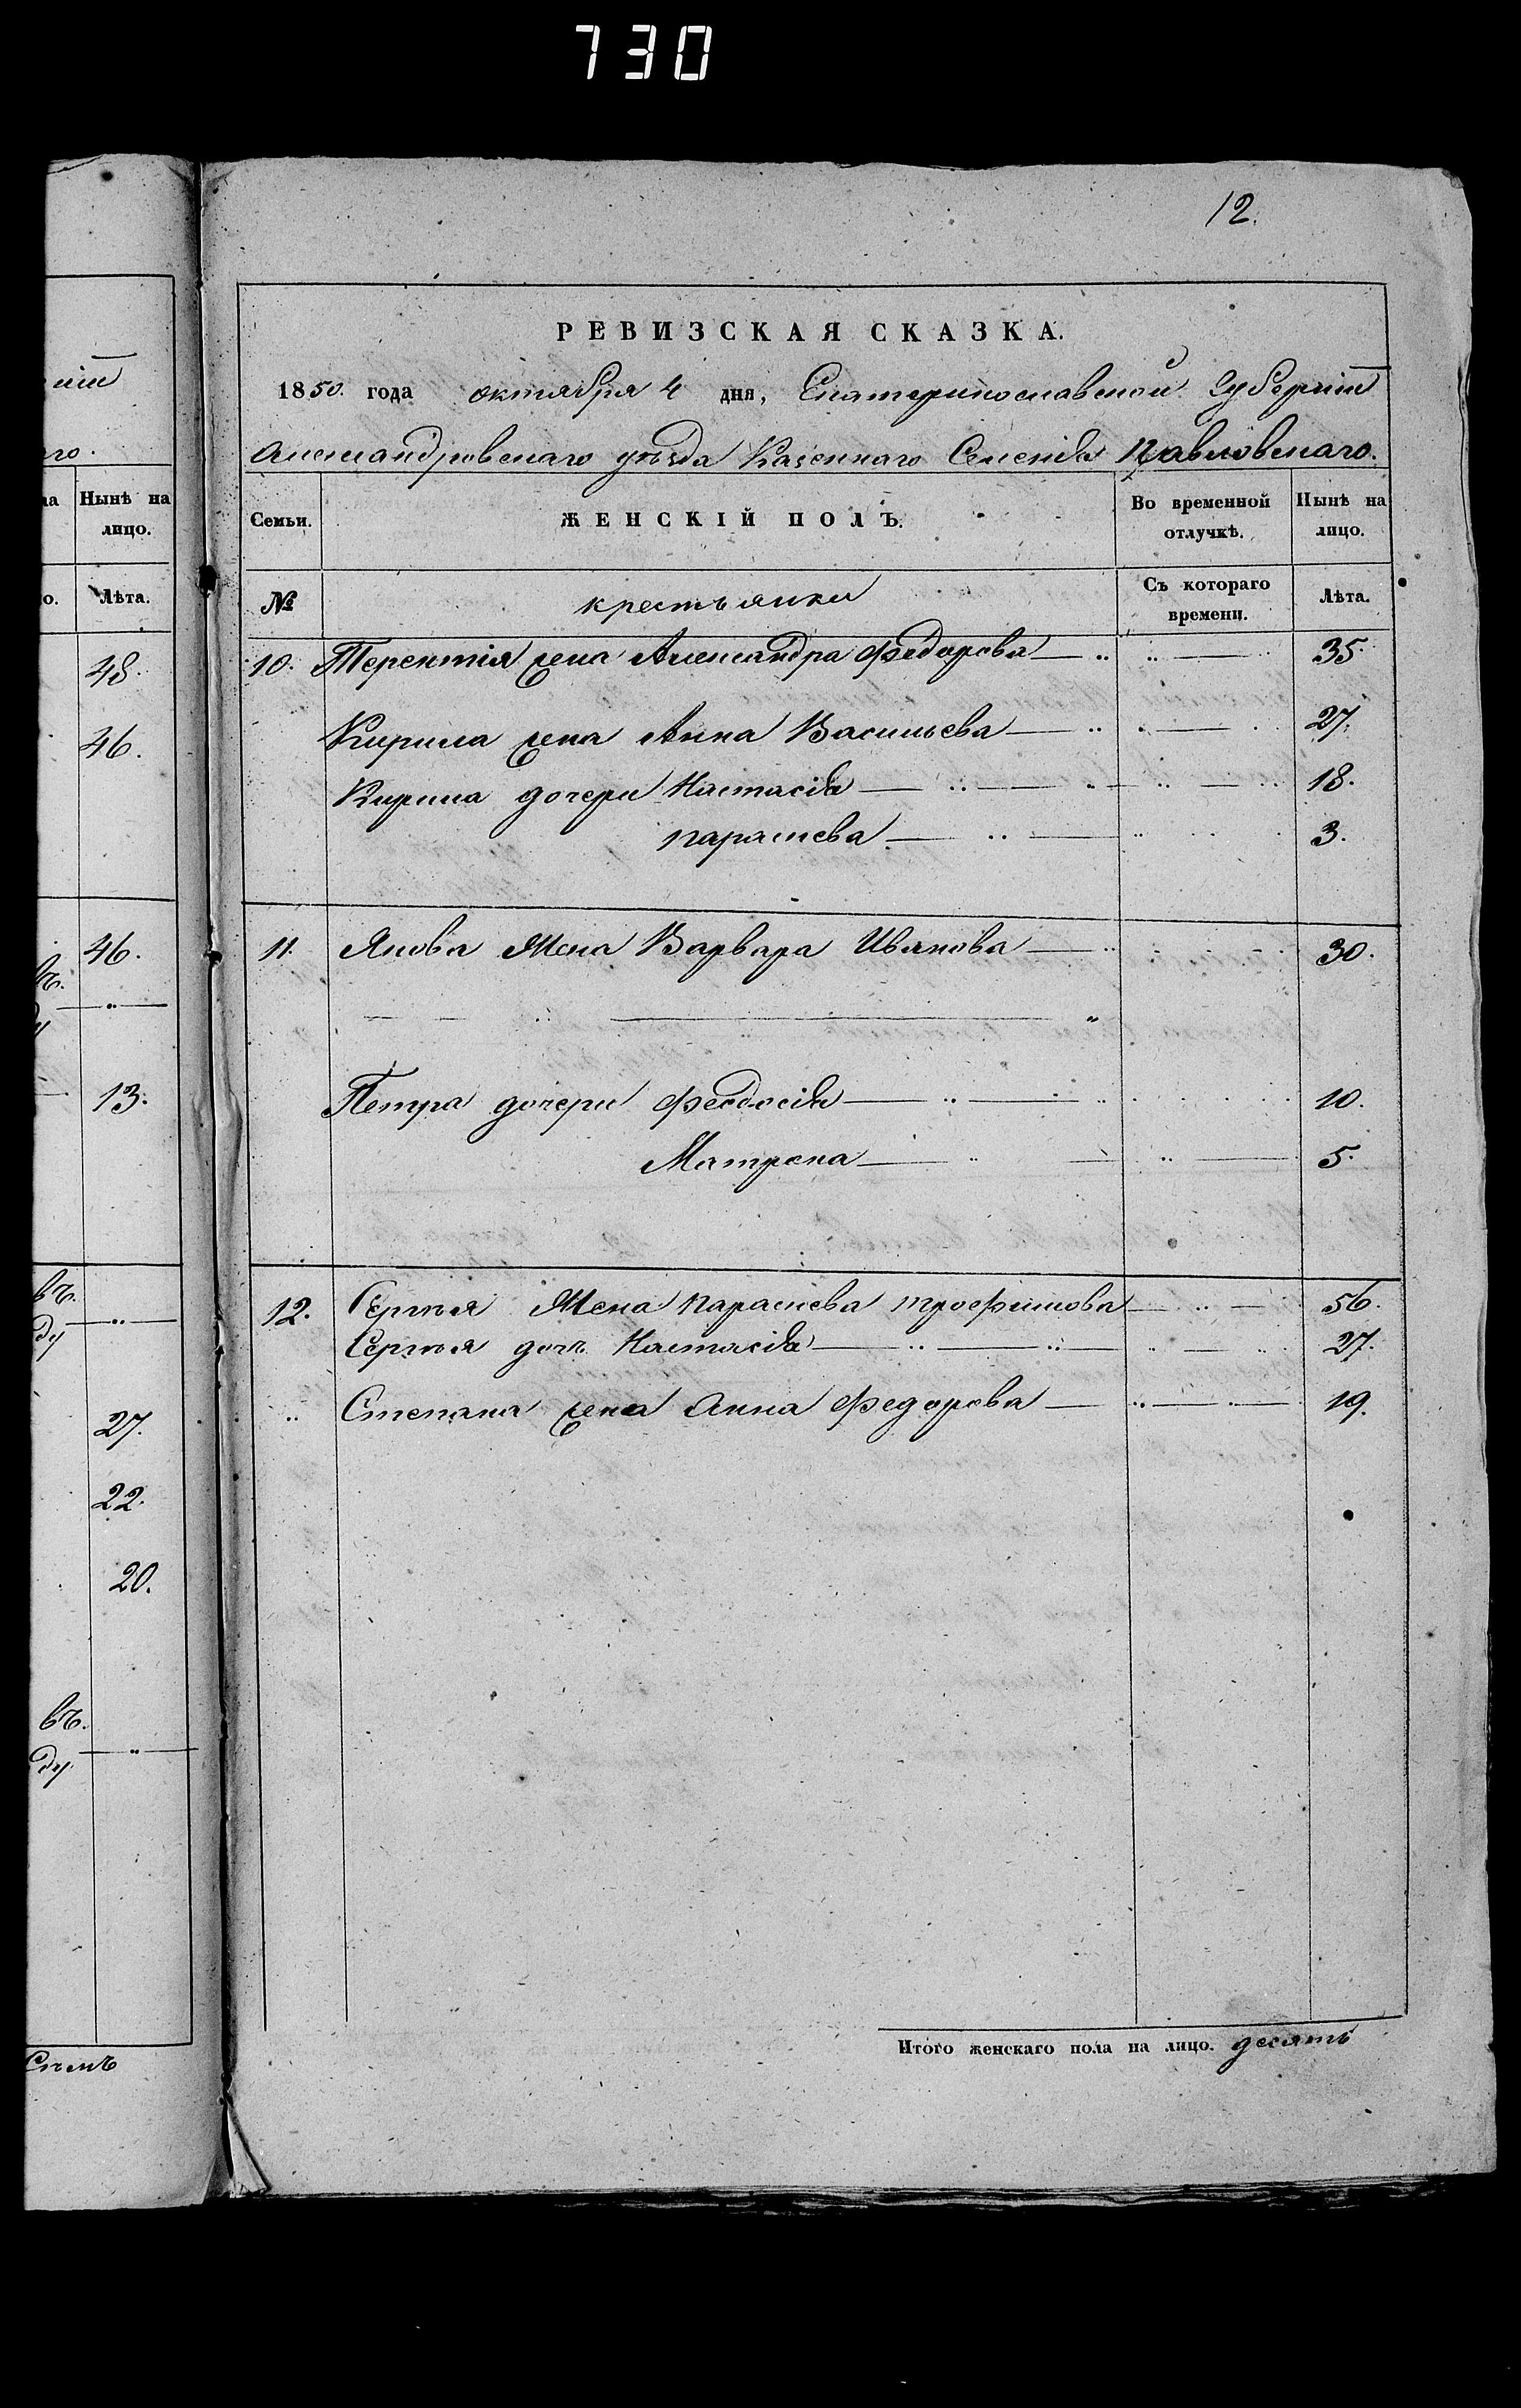 730
12.
иіи
го.
на Нынѣ на
лицо.
о. Лѣта.
48.
46.
46.
въ.
ду
13.
въ.
ду
27.
22.
20.
въ.
ду
Семь
РЕВИЗСКАЯ СКАЗКА.
1850. года октября 4 дня, Екатеринославской Губерніи
Александровскаго уѣзда Казеннаго Селенія Павловскаго.
Семьи. ЖЕНСКІЙ ПОЛЪ. Во временной отлучкѣ. Нынѣ на лицо.
№ крестьянки Съ котораго времени. Лѣта.
10. Терентія жена Александра Федорова 35.
Кирила жена Анна Васильева 27.
Кирила дочери Настасія 18.
Параскева 3.
11. Якова Жена Варвара Иванова 30.
Петра дочери Феодосія 10.
Матрона 5.
12. Сергѣя Жена Параскева Трофимова 56.
Сергѣя дочь Настасія 27.
Степана жена Анна Федорова 19.
Итого женскаго пола на лицо. десять